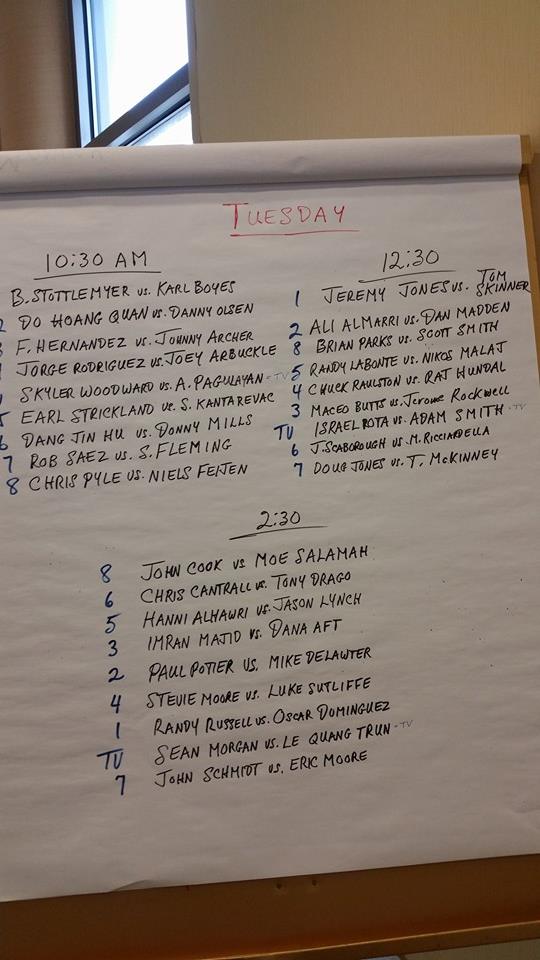 TUESDAY
10:30 AM
B. STOTTLEMYER vs. KARL BOYES
2 DO HOANG QUAN vs. DANNY OLSEN
3 F. HERNANDEZ vs. JOHNNY ARCHER
JORGE RODRIGUEZ vs. JOEY ARBUCKLE
SKYLER WOODWARD vs. A. PAGULAYAN - TV
5 EARL STRICKLAND vs. S. KANTAREVAC
6 DANG JIN HU vs. DONNY MILLS
7 ROB SAEZ vs. S. FLEMING
8 CHRIS PYLE vs. NIELS FEIJEN
12:30
1 JEREMY JONES vs. TOM SKINNER
2 ALI ALMARRI vs. DAN MADDEN
8 BRIAN PARKS vs. SCOTT SMITH
5 RANDY LABONTE vs. NIKOS MALAJ
4 CHUCK RAULSTON vs. RAJ HUNDAL
3 MACEO BUTTS vs. Jerome Rockwell
TV ISRAEL ROTA vs. ADAM SMITH - TV
6 J. SCABOROUGH vs. M. RICCIARDELLA
7 DOUG JONES vs. T. McKINNEY
2:30
8 JOHN COOK vs MOE SALAMAH
6 CHRIS CANTRALL vs. TONY DRAGO
5 HANNI ALHAWRI vs. JASON LYNCH
3 IMRAN MAJID vs. DANA AFT
2 PAUL POTIER VS. MIKE DELAWTER
4 STEVIE MOORE vs. LUKE SUTLIFFE
1 RANDY RUSSELL vs. OSCAR DOMINGUEZ
TV SEAN MORGAN vs. LE QUANG TRUN - TV
7 JOHN SCHMIDT vs. ERIC MOORE